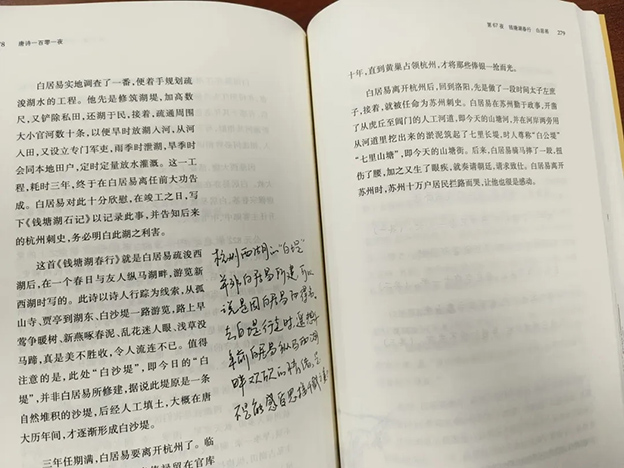 78 唐诗一百零一夜
白居易实地调查了一番，便着手规划疏
浚湖水的工程。他先是修筑湖堤，加高数
尺，又铲除私田，还湖于民，接着，疏通周围
大小官河数十条，以便旱时放湖入河，从河
入田，又设立专门军吏，雨季时泄湖，旱季时
会同本地田户，定时定量放水灌溉。这一工
程，耗时三年，终于在白居易离任前大功告
成。白居易对此十分欣慰，在竣工之日，写
下《钱塘湖石记》以记录此事，并告知后来
的杭州刺史，务必明白此湖之利害。
这首《钱塘湖春行》就是白居易疏浚西
湖后，在一个春日与友人纵马湖畔，游览新
西湖时写的。此诗以诗人行踪为线索，从孤
山寺、贾亭到湖东、白沙堤一路游览，路上早
莺争暖树，新燕啄春泥、乱花迷人眼、浅草没
马蹄，真是美不胜收，令人流连不已。值得
注意的是，此处“白沙堤”，即今日的“白
堤”，并非白居易所修建，据说此堤原是一条
自然堆积的沙堤，后经人工填土，大概在唐
大历年间，才逐渐形成白沙堤。
三年任期满，白居易要离开杭州了。临
俸起留在官库
杭州西湖的“白堤”
并非白居易所建，所以
说是因白居易而得名
去白堤行走时，遥想
年前白居易纵马西湖
畔
第67夜 钱塘湖春行 白居易 279
十年，直到黄巢占领杭州，才将那些俸银一抢而光。
白居易离开杭州后，回到洛阳，先是做了一段时间太子左庶
子，接着，就被任命为苏州刺史。白居易在苏州勤于政事，开凿
了从虎丘至阊门的人工河道，即今天的山塘河，并在河岸两旁用
从河道里挖出来的淤泥筑起了七里长堤，时人尊称“白公堤”
“七里山塘”，即今天的山塘街。后来，白居易骑马摔了一跤，扭
伤了腰，加之又生了眼疾，就奏请朝廷，请求致仕。白居易离开
苏州时，苏州十万户居民拦路而哭，让他也很是感动。